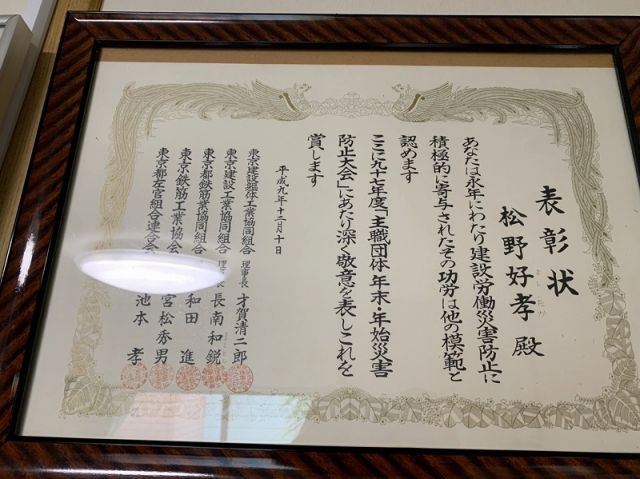 表彰状
松野好孝 殿
よしたか
あなたは永年にわたり建設労働災害防止に
積極的に寄与されたその功労は他の模範と
認めます
ここに九十七年度「主職団体年末・年始災害
防止大会」にあたり深く敬意を表しこれを
賞します
平成九年十二月十日
東京建設躯体工業協同組合 理事長 才賀清二郎
東京建設工業協同組合 理事長 長南和鋭
東京都鉄筋業協同組合 和田進
東京鉄筋工業協会 宮松秀男
東京都左官組合連合会 池本孝